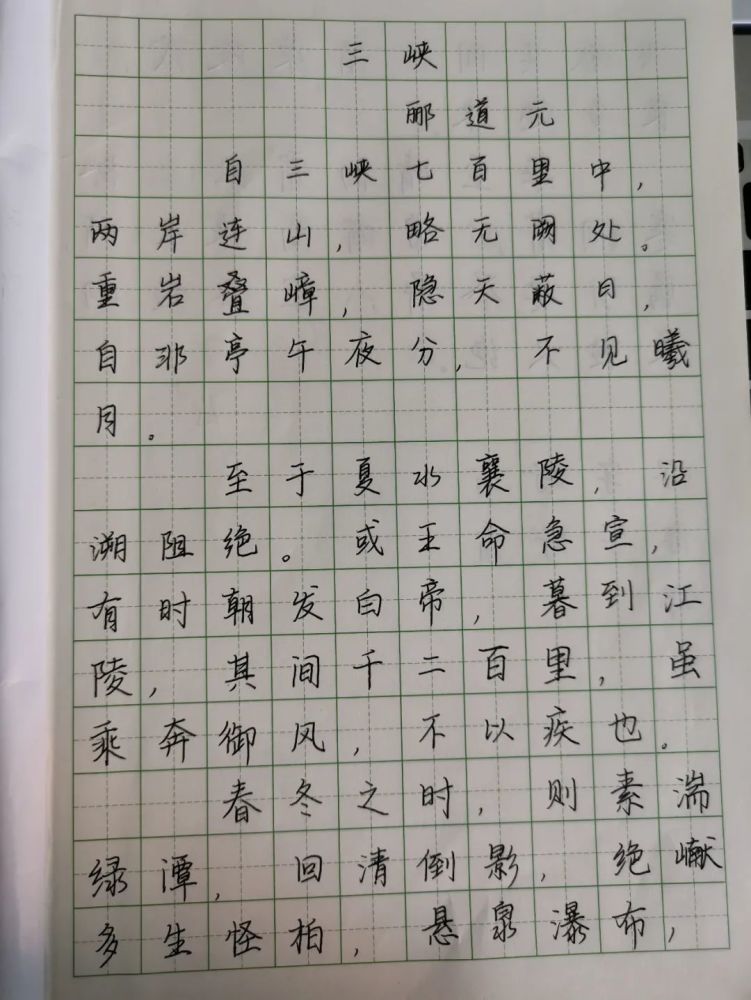 三峡
郦道元
自三峡七百里中，
两岸连山，略无阙处。
重岩叠嶂，隐天蔽日，
自非亭午夜分，不见曦
月。
至于夏水襄陵，沿
溯阻绝。或王命急宣，
有时朝发白帝，暮到江
陵，其间千二百里，虽
乘奔御风，不以疾也。
春冬之时，则素湍
绿潭，回清倒影，绝巘
多生怪柏，悬泉瀑布，